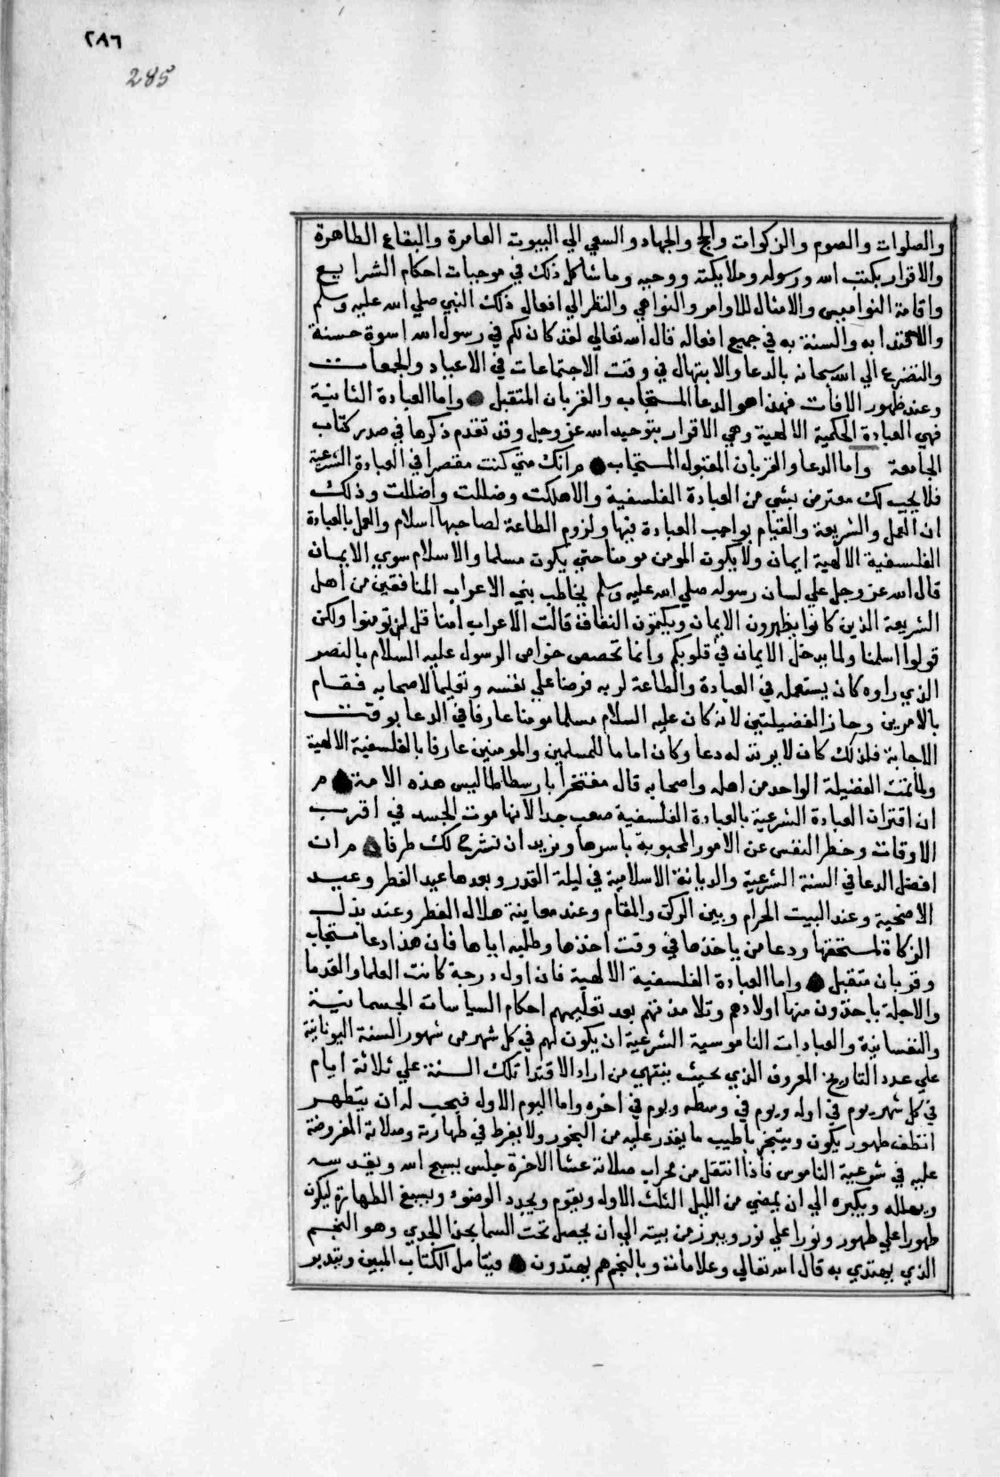 ٢٨٦
285
والصلوات والصوم والزكوات والحج والجهاد والسعي الي البيوت العامرة والبقاع الطاهرة
والاقرار بكتب الله ورسوله وملايكته ووحيه وما شاكل ذلك في موجبات احكام الشرايع
واقامة النواميس والامثال للاوامر والنواهي والنظر الي افعال ذلك النبي صلي الله عليه وسلم
والاقتدا به والسنة به في جميع افعاله قال الله تعالي لقد كان لكم في رسول الله اسوة حسنة
والتضرع الي الله سبحانه بالدعا والابتهال في وقت الاجتماعات في الاعياد والجمعات
وعند ظهور الافات فهذا هو الدعا المستجاب والقربان المتقبل واما العبادة الثانية
فهي العبادة الحكمية الالهية وهي الاقرار بتوحيد الله عز وجل وقد تقدم ذكرها في صدر كتاب
الجامعة واما الدعا والقربان المقبول المستجاب م انك متي كنت مقصرا في العبادة الشرعية
فلا يجب لك معترض بشي من العبادة الفلسفية والا هلكت وضللت واضللت وذلك
ان العمل والشريعة والقيام بواجب العبادة فيها ولزوم الطاعة لصاحبها اسلام والعمل بالعبادة
الفلسفية الالهية ايمان ولا يكون المومن مومنا حتي يكون مسلما والاسلام سوي الايمان
قال الله عز وجل علي لسان رسوله صلي الله عليه وسلم يخاطب بني الاعراب المنافقين من اهل
الشريعة الذين كانوا يظهرون الايمان ويكتمون النفاقة قالت الاعراب امنا قل لن تومنوا ولكن
قولوا اسلمنا ولما يدخل الايمان في قلوبكم وانما تخصص خواص الرسول عليه السلام بالنصر
الذي راوه كان يستعمله في العبادة والطاعة لربه فرضا علي نفسه وتعليما لاصحابه فقام
بالامرين وحاز الفضيلتين لانه كان عليه السلام مسلما مومنا عارفا في الدعا بوقت
الاجابة فلذلك كان لا يرد له دعا وكان اماما للمسلمين والمومنين عارفا بالفلسفية الالهية
ولما تمت الفضيلة الواحد من اهله واصحابه قال مفتخرا بارسطاطاليس هذه الامة م
ان اقتران العبادة الشرعية بالعبادة الفلسفية صعب جدا لانها موت الجسد في اقرب
الاوقات وحظر النفس عن الامور المحبوبة باسرها ونزيد ان نشرح لك طرفا م ان
افضل الدعا في السنة الشرعية والديانة الاسلامية في ليلة القدر وبعدها عيد الفطر وعيد
الاضحية وعند البيت الحرام وبين الركن والمقام وعند معاينة هلال الفطر وعند بذل
الزكاة لمستحقها ودعا من ياخذها في وقت اخذها وطلبه اياها فان هذا دعا مستجاب
وقربان متقبل واما العبادة الفلسفية الالهية فان اول درجة كانت العلما والقدما
والاجلة ياخذون منها اولادهم وتلامذتهم بعد تعليمهم احكام السياسات الجسمانية
والنفسانية والعبادات الناموسية الشرعية ان يكون لهم في كل شهر من شهور السنة اليونانية
علي عدد التاريخ المعروف الذي بحيث ينتهي من اراد الاقتدا تلك السنة علي ثلاثة ايام
في كل شهر يوم في اوله ويوم في وسطه ويوم في اخره واما اليوم الاول فيجب له ان يتطهر
انظف طهور يكون ويتبخر باطيب ما يقدر عليه من البخور ولا يفرط في طهارته وصلاته المفروضة
عليه في شرعية الناموس فاذا انتقل من محراب صلاته عشا الاخرة جلس يسبح الله ويقدسه
ويهلله ويكبره الي ان يمضي من الليل الثلث الاول ويقوم ويجدد الوضوء ويسبغ الطهارة ليكون
طهورا علي طهور ونورا علي نور ويبرز من بيته الي ان يحصل تحت السما بحذا الجدي وهو النجم
الذي يهتدي به قال الله تعالي وعلامات وبالنجم هم يهتدون ويتامل الكتاب المبين ويتدبر